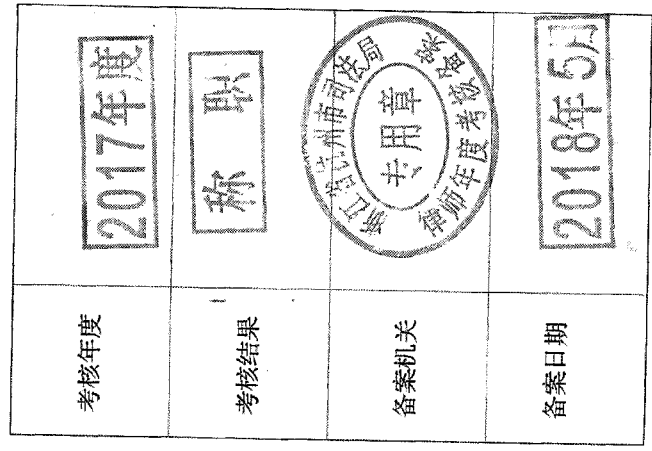 考核年度
2017年度
考核结果
称职
备案机关
浙江省杭州市司法局
律师年度考核备案
专用章
备案日期
2018年5月